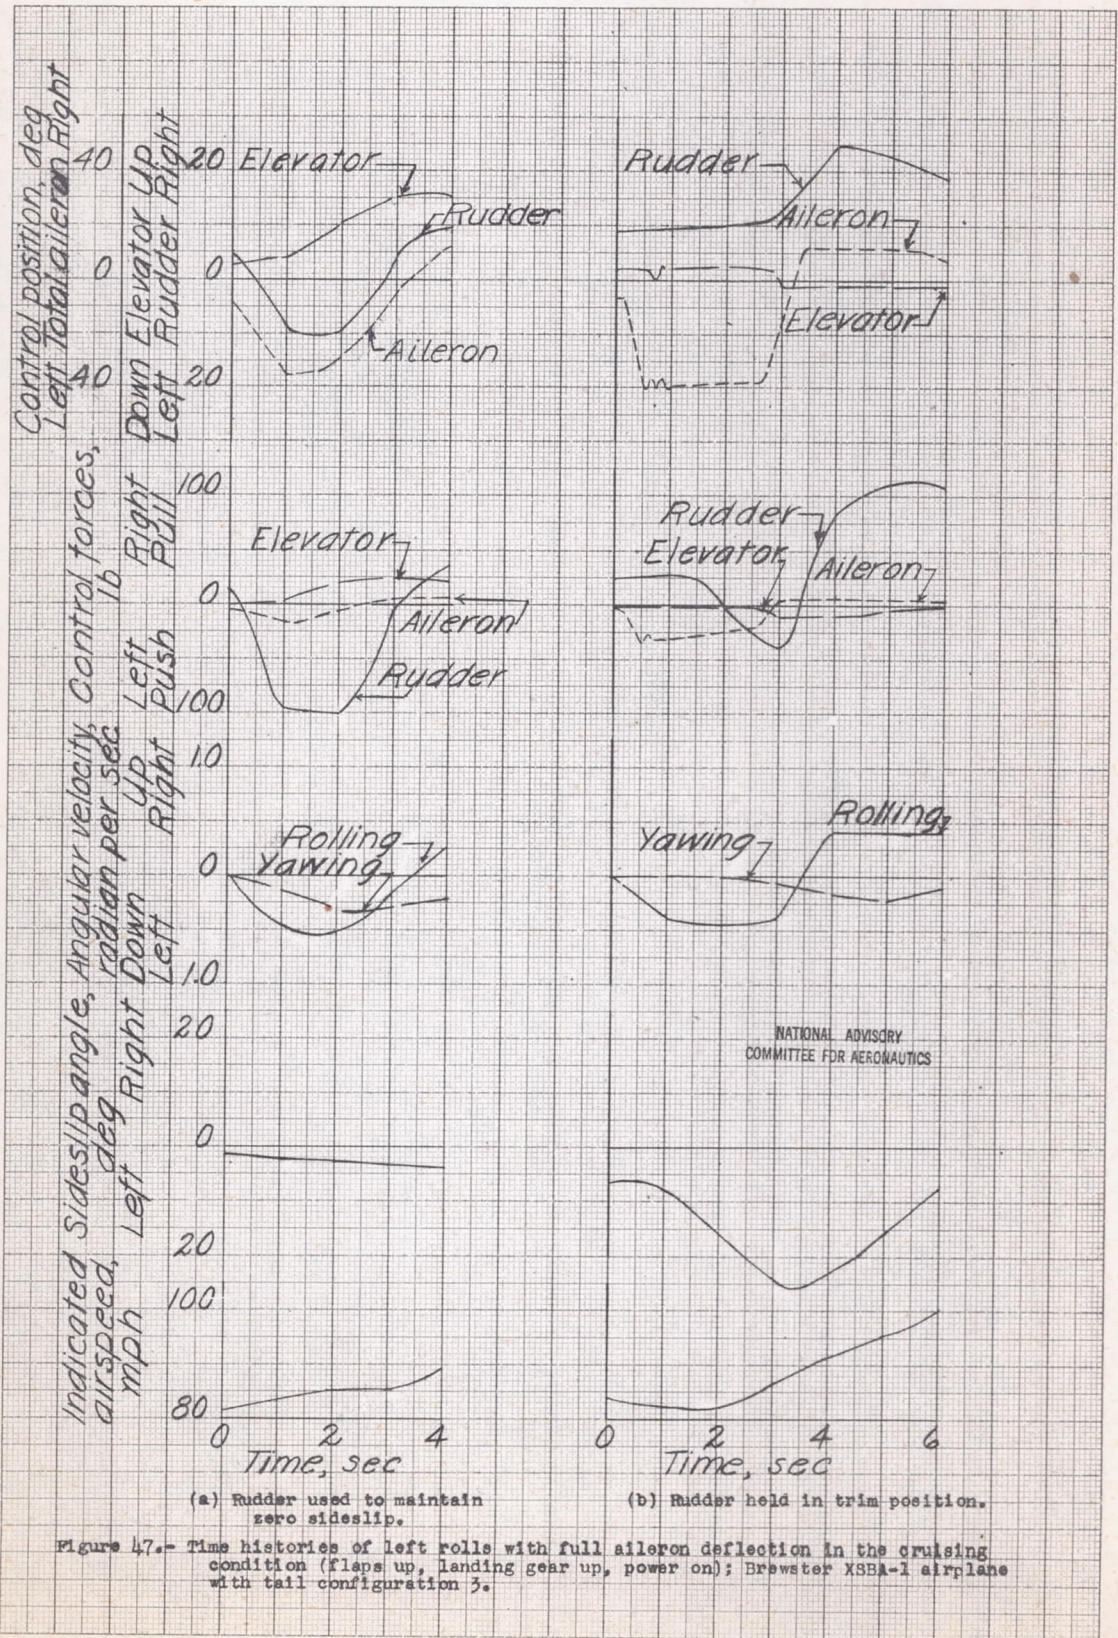 Control position, deg
Left Total aileron Right
40
0
40
Down Elevator Up
Left Rudder Right
20
0
20
Elevator
Rudder
Aileron
Rudder
Aileron
Elevator
Control forces,
lb
Left Right
Push Pull
100
0
100
Elevator
Aileron
Rudder
Rudder
Elevator
Aileron
Angular velocity,
radian per sec
Down Up
Left Right
1.0
0
1.0
Rolling
Yawing
Yawing
Rolling
Sideslip angle,
deg
Left Right
20
0
20
NATIONAL ADVISORY
COMMITTEE FOR AERONAUTICS
Indicated
airspeed,
mph
100
80
0 2 4
Time, sec
0 2 4 6
Time, sec
(a) Rudder used to maintain
zero sideslip.
(b) Rudder held in trim position.
Figure 47.- Time histories of left rolls with full aileron deflection in the cruising
condition (flaps up, landing gear up, power on); Brewster XSBA-1 airplane
with tail configuration 3.